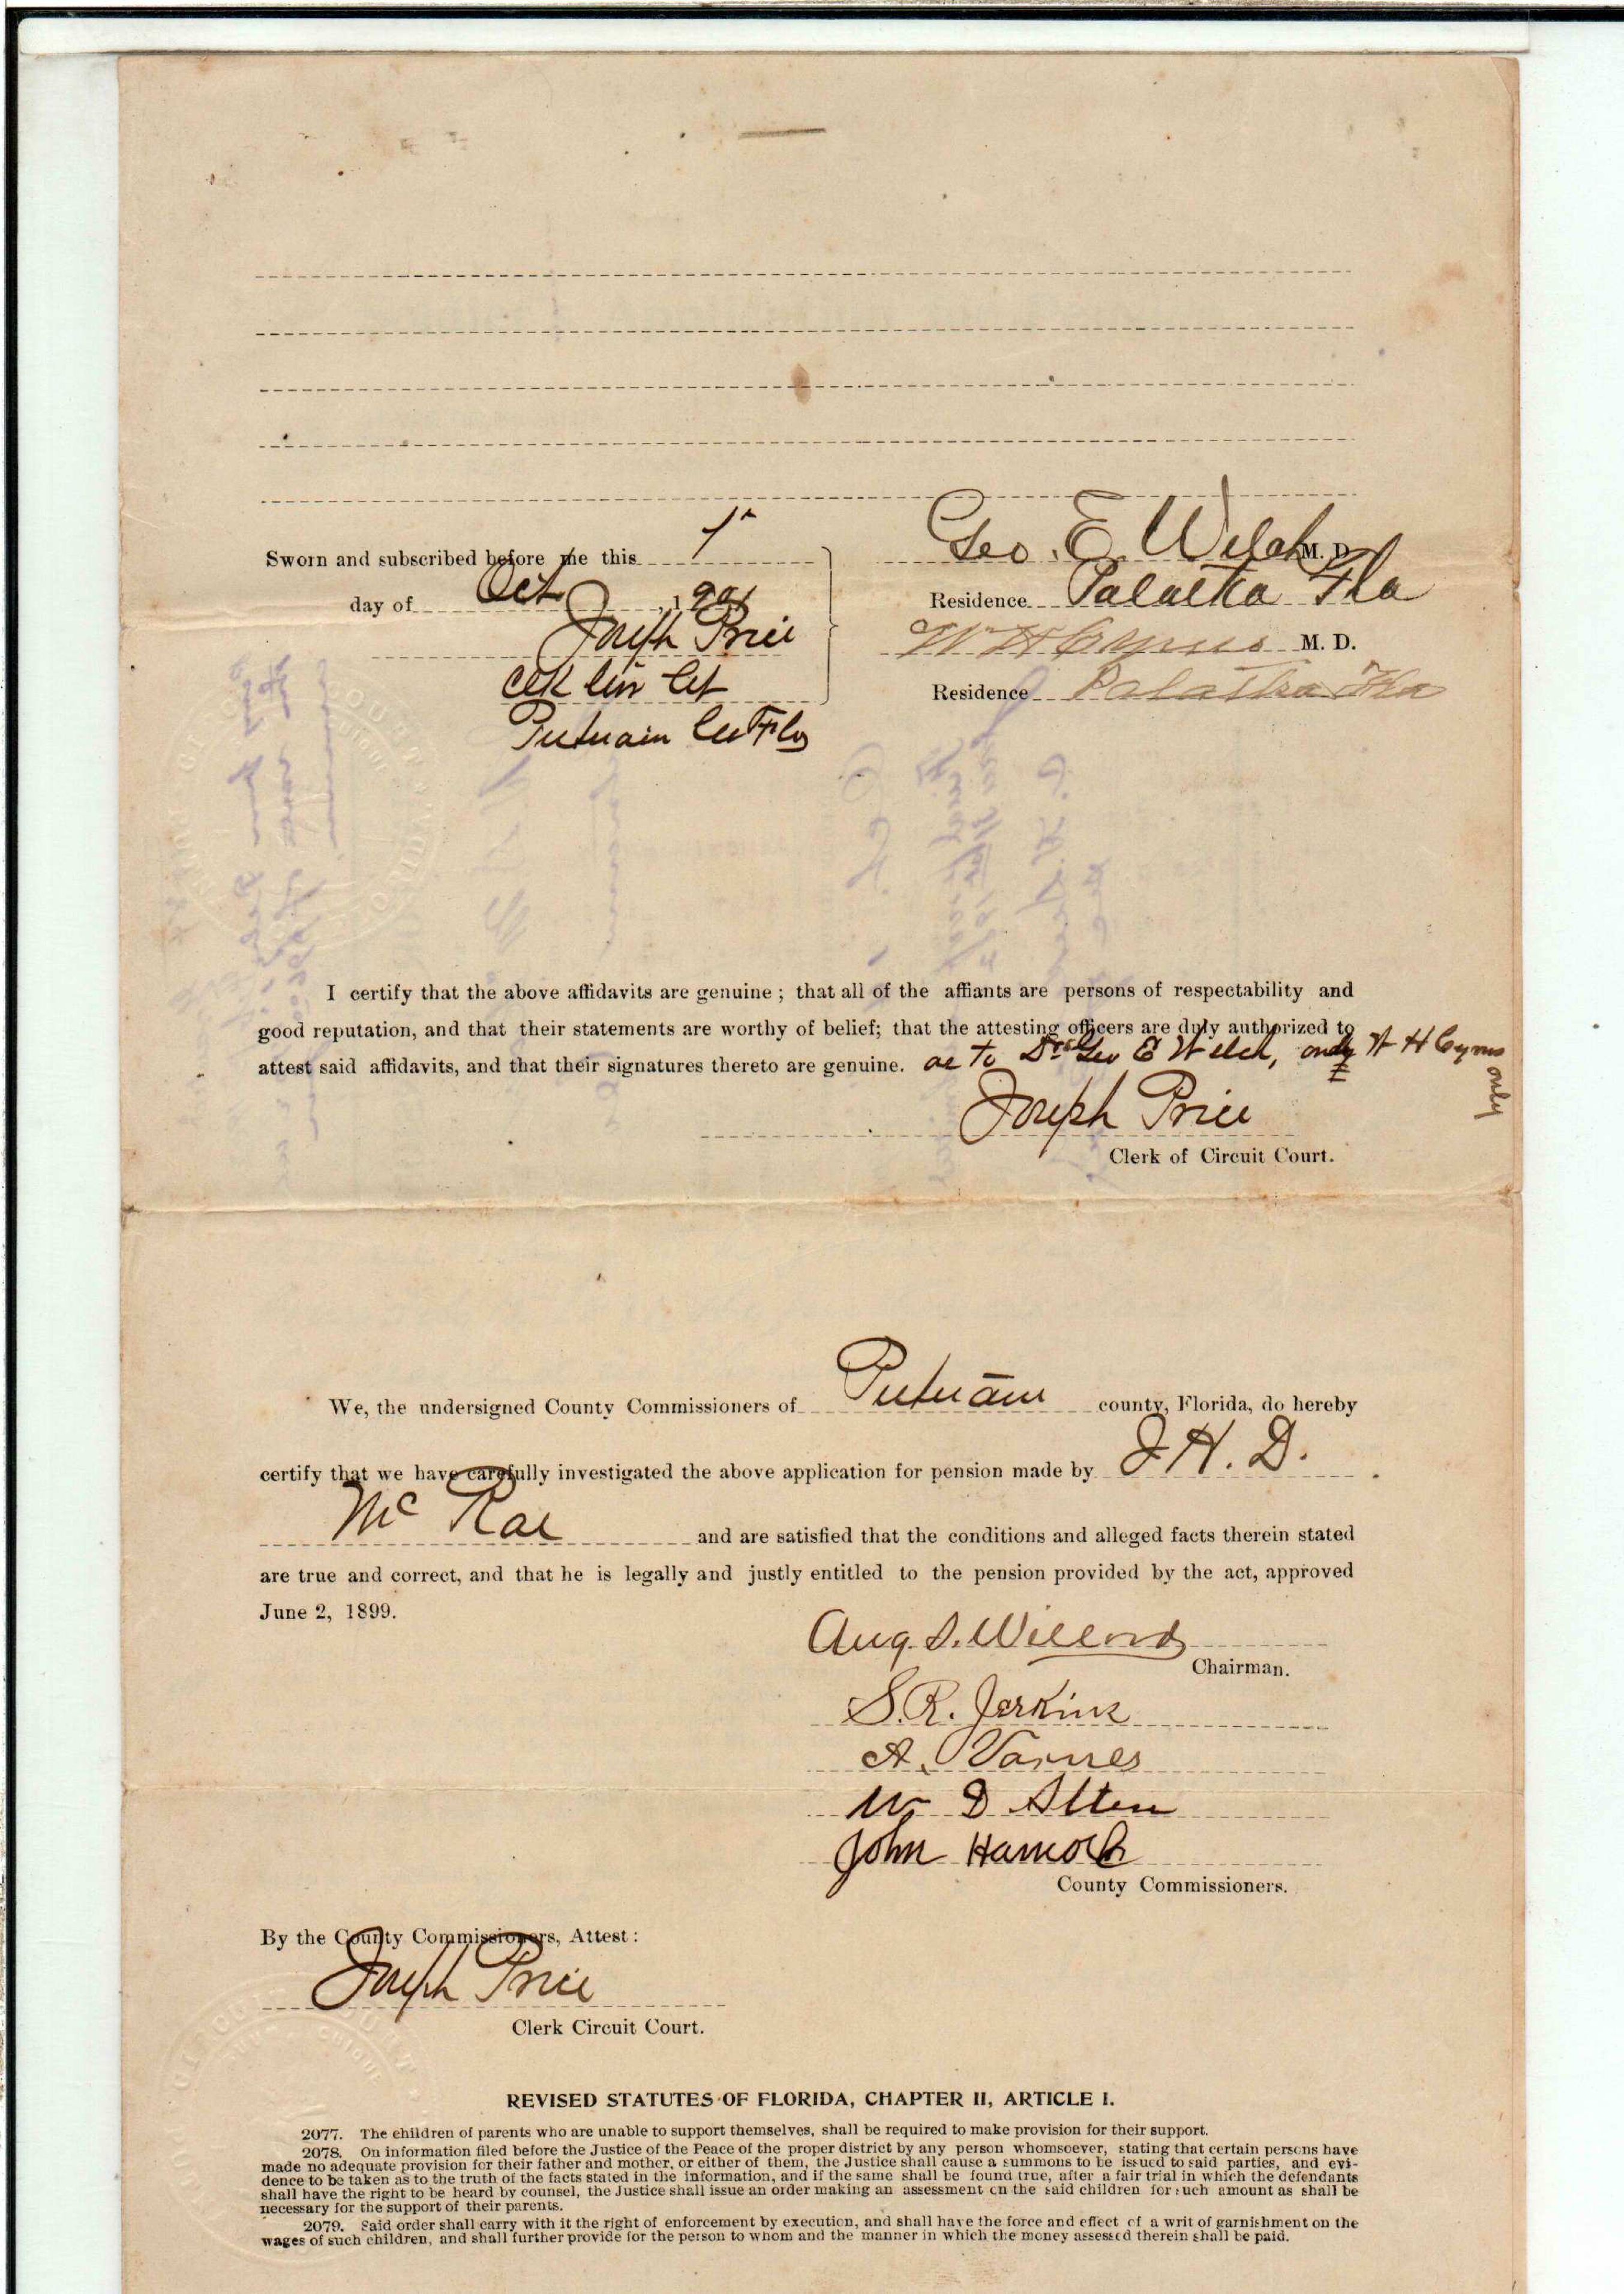 Sworn and subscribed before me this 1st
day of Oct, 1901
Joseph Price
Clk Cir Ct
Putnam Co Fla
Geo. E. Welch M. D.
Residence Palatka Fla
W H Cyrus M. D.
Residence Palatka Fla
I certify that the above affidavits are genuine; that all of the affiants are persons of respectability and
good reputation, and that their statements are worthy of belief; that the attesting officers are duly authorized to
attest said affidavits, and that their signatures thereto are genuine. as to Drs Geo E Welch, only W H Cyrus only
Joseph Price
Clerk of Circuit Court.
We, the undersigned County Commissioners of Putnam county, Florida, do hereby
certify that we have carefully investigated the above application for pension made by J. H. D.
Mc Rae and are satisfied that the conditions and alleged facts therein stated
are true and correct, and that he is legally and justly entitled to the pension provided by the act, approved
June 2, 1899.
Aug. S.
Chairman.
S. R. Jerkins
A. Varnes
W D Allen
John Hancock
County Commissioners.
By the County Commissioners, Attest:
Joseph Price
Clerk Circuit Court.
REVISED STATUTES OF FLORIDA, CHAPTER II, ARTICLE I.
2077. The children of parents who are unable to support themselves, shall be required to make provision for their support.
2078. On information filed before the Justice of the Peace of the proper district by any person whomsoever, stating that certain persons have
made no adequate provision for their father and mother, or either of them, the Justice shall cause a summons to be issued to said parties, and evi-
dence to be taken as to the truth of the facts stated in the information, and if the same shall be found true, after a fair trial in which the defendants
shall have the right to be heard by counsel, the Justice shall issue an order making an assessment on the said children for such amount as shall be
necessary for the support of their parents.
2079. Said order shall carry with it the right of enforcement by execution, and shall have the force and effect of a writ of garnishment on the
wages of such children, and shall further provide for the person to whom and the manner in which the money assessed therein shall be paid.